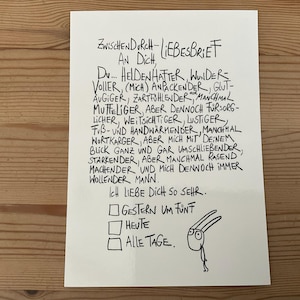 ZWISCHENDURCH-LIEBESBRIEF
AN DICH,
DU... HELDENHAFTER, WUNDER-
VOLLER, (MICH) ANPACKENDER, GUT-
ÄUGIGER, ZARTFÜHLENDER, MANCHMAL
MUFFELIGER, ABER DENNOCH FÜRSORG-
LICHER, WEITSICHTIGER, LUSTIGER,
FUß- UND HANDWÄRMENDER, MANCHMAL
WORTKARGER, ABER MICH MIT DEINEM
BLICK GANZ UND GAR UMSCHLIEßENDER,
STÄRKENDER, ABER MANCHMAL RASEND
MACHENDER UND MICH DENNOCH IMMER
WOLLENDER MANN.
ICH LIEBE DICH SO SEHR.
GESTERN UM FÜNF
HEUTE
ALLE TAGE.